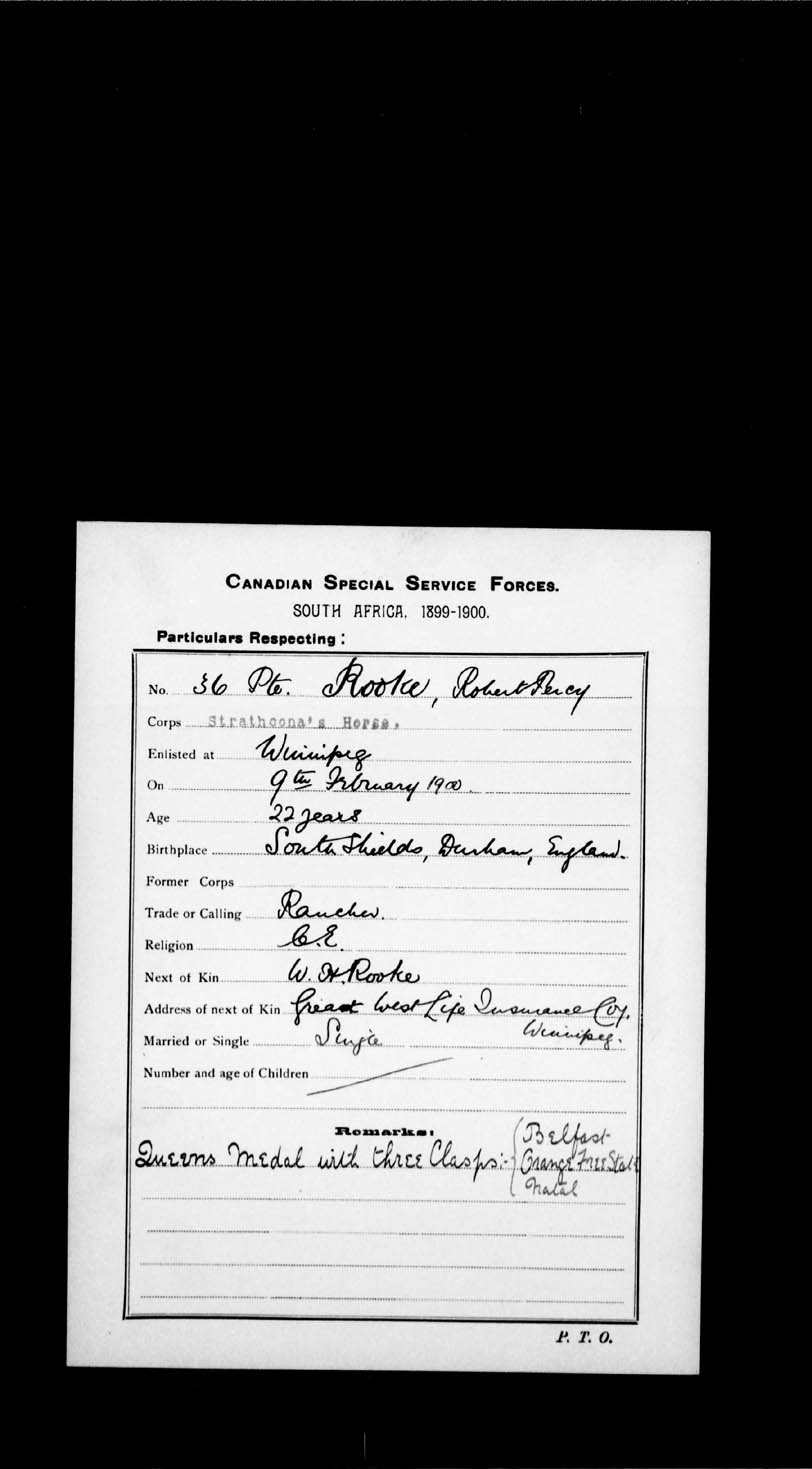 CANADIAN SPECIAL SERVICE FORCES.
SOUTH AFRICA, 1899-1900.
Particulars Respecting:
No. 36 Pte. Rooke, Robert Percy
Corps Strathcona's Horse.
Enlisted at Winnipeg
On 9th February 1900
Age 22 years
Birthplace South Shields, Durham, England.
Former Corps
Trade or Calling Rancher.
Religion C.E.
Next of Kin W. H. Rooke
Address of next of Kin Great West Life Insurance Coy.
Winnipeg.
Married or Single Single
Number and age of Children
Remarks:
Queens Medal with three Clasps:-
Belfast
Orange Free State
Natal
P. T. O.